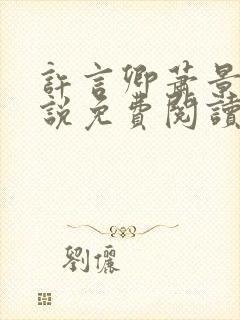 許言卿蕭景
說免費閱讀
劉儷